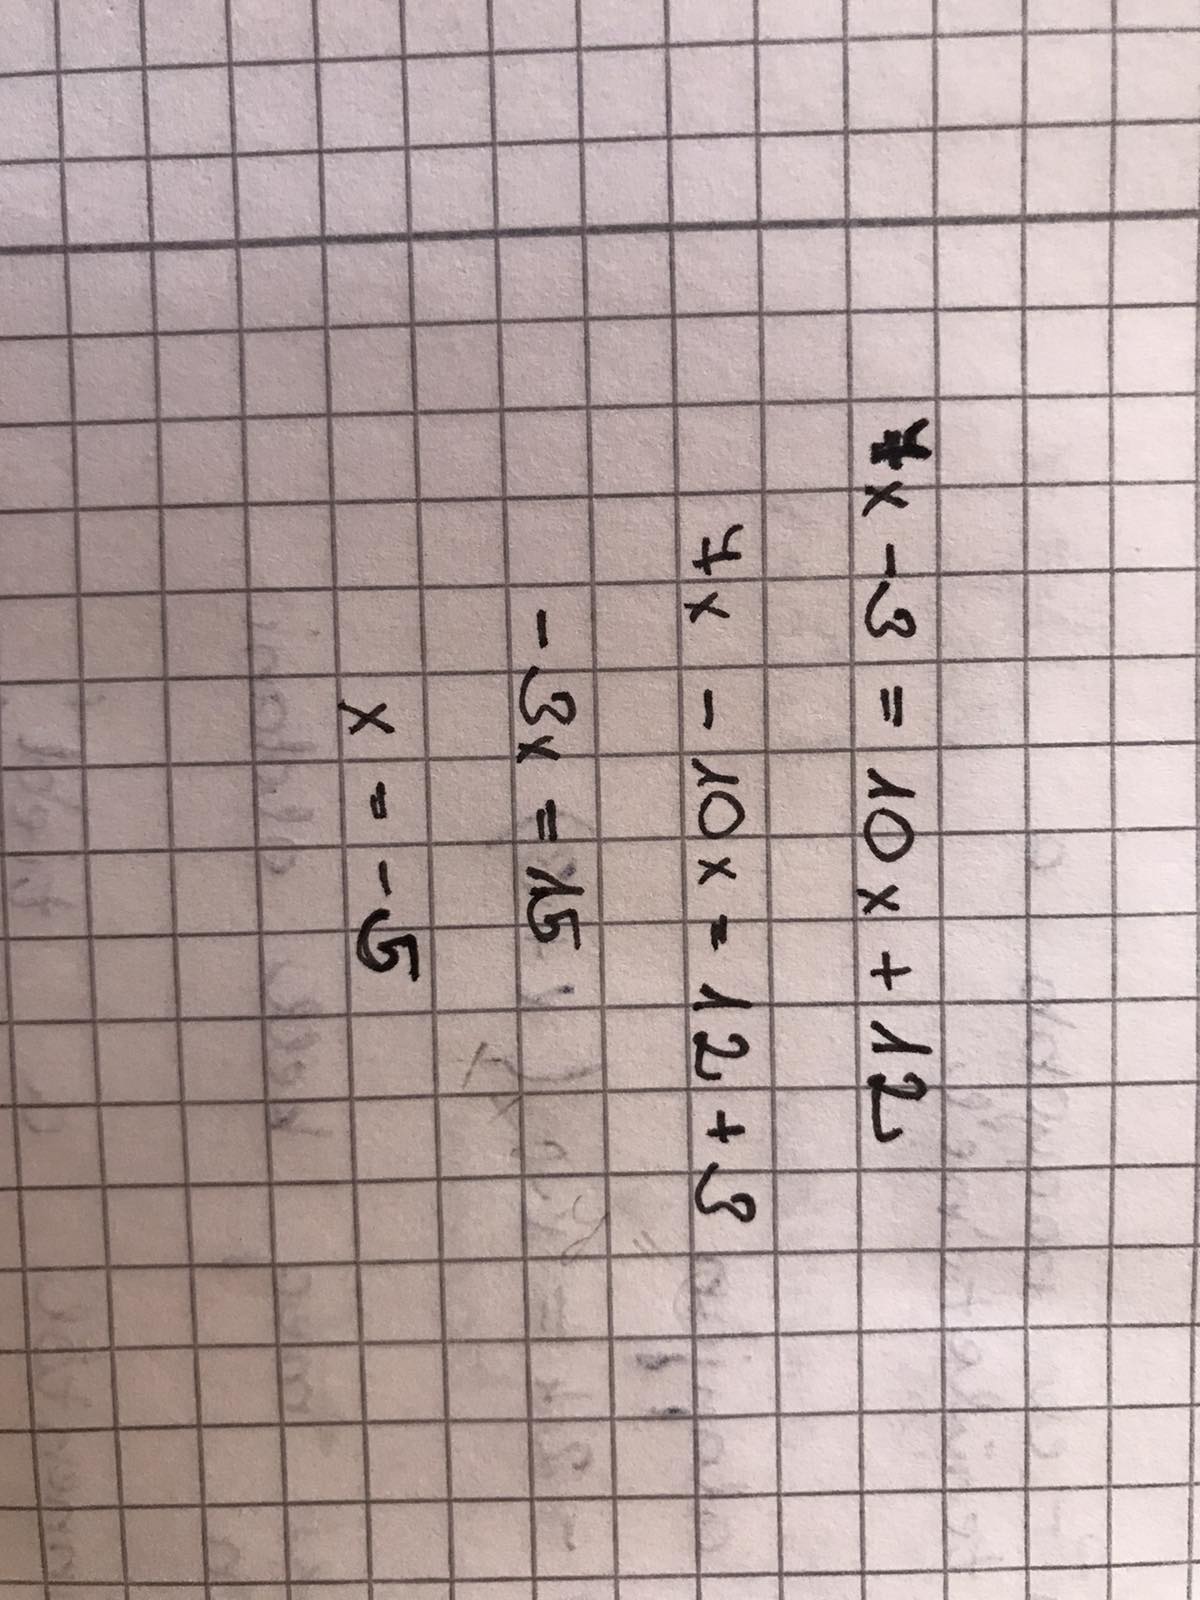 7x - 3 = 10x + 12
7x - 10x = 12 + 3
- 3x = 15
x = - 5